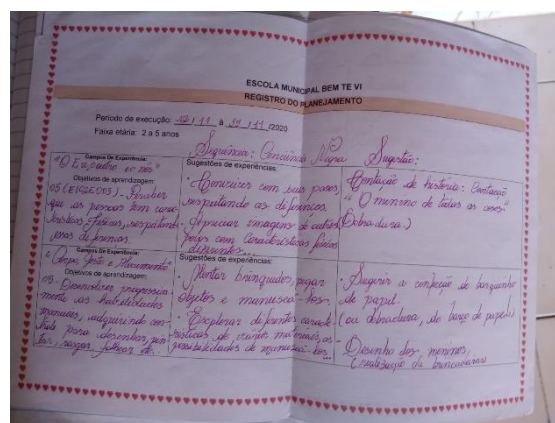 ESCOLA MUNICIPAL BEM TE VI
REGISTRO DO PLANEJAMENTO
Período de execução: à /11/2020
Faixa etária: 2 a 5 anos
Sequência: Consciência Negra Sugestão:
Campos De Experiência:
"O Eu, o outro e o nós"
Objetivos de aprendizagem:
05 (EI02EO05) - Perceber
que as pessoas tem carac-
terísticas físicas, respeitando
essas diferenças.
Sugestões de experiências:
com seus pares,
respeitando as diferenças.
Apreciar imagens de outros
povos com características físicas
diferentes...
Contação de história: Contação
"O menino de todas as cores"
(Dobradura.)
Campos De Experiência:
Corpo, Gesto e Movimento
Objetivos de aprendizagem:
05 - Desenvolver progressiva
mente as habilidades
manuais, adquirindo con-
trole para desenhar, pin-
tar, rasgar, folhear etc.
Sugestões de experiências:
Montar brinquedos, pegar
objetos e manuseá-los.
Explorar diferentes caracte-
rísticas de vários materiais, as
possibilidades de manuseá-los...
Sugerir a confecção de barquinho
de papel.
(ou dobradura, do barco de papel.)
Desenho dos meninos,
(realização de brincadeiras